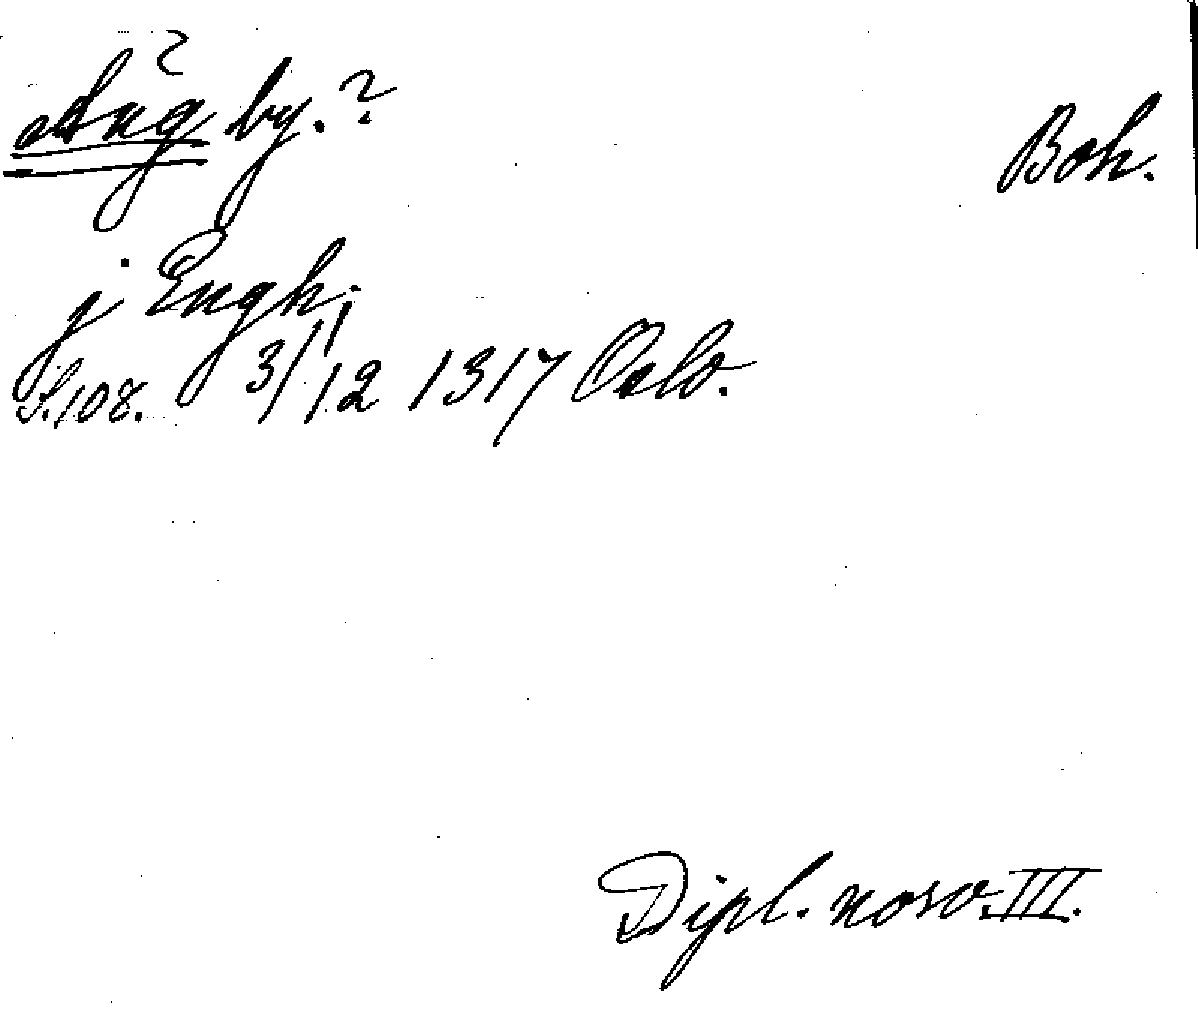 Äng by.?
Boh.
j Engh.
S. 108. 3/12 1317 Oslo.
Dipl. norv. III.